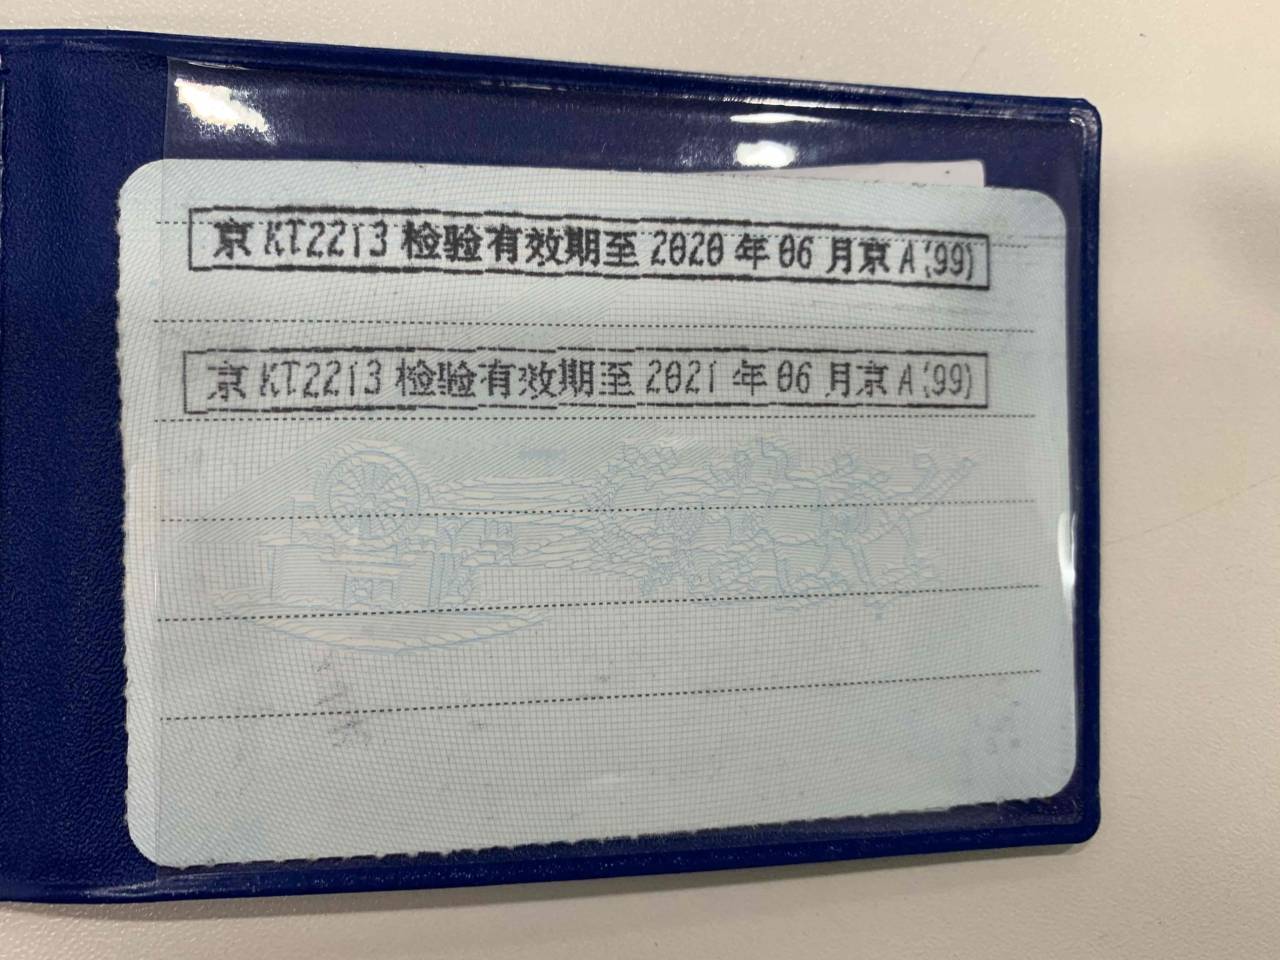 京KT2213检验有效期至2020年06月京A(99)
京KT2213检验有效期至2021年06月京A(99)